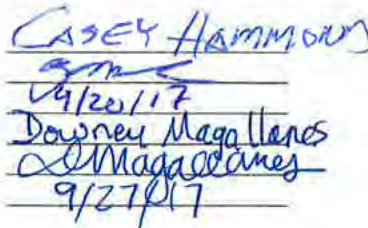 CASEY HAMMOND
9/20/17
Downey Magallanes
DMagallanes
9/27/17